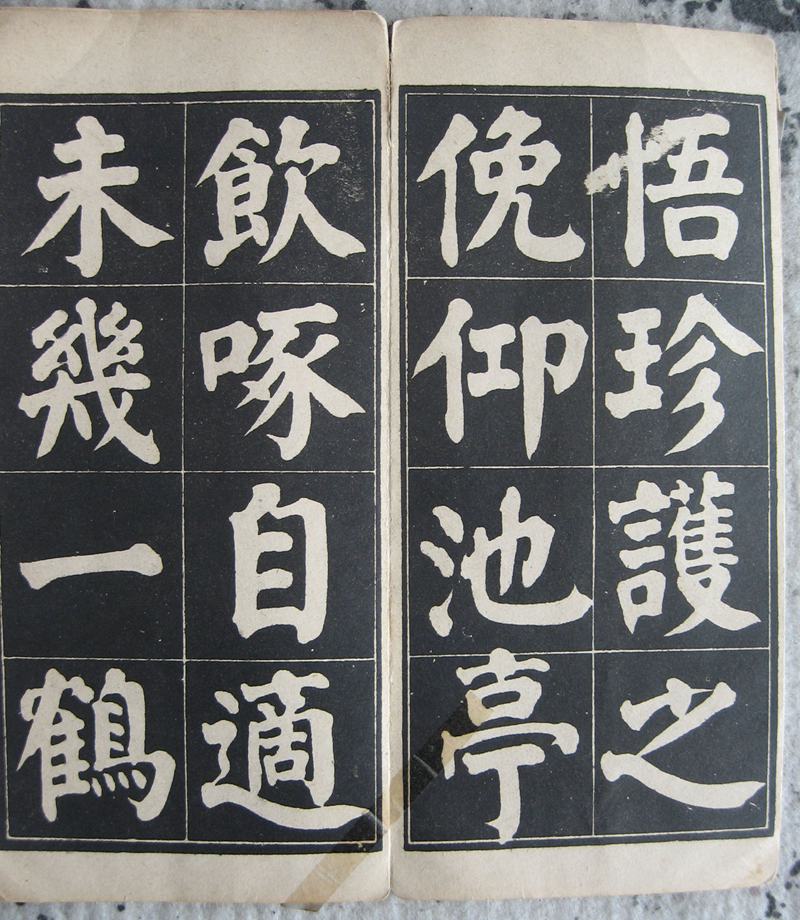 悟珍護之
俛仰池亭
飲啄自適
未幾一鶴